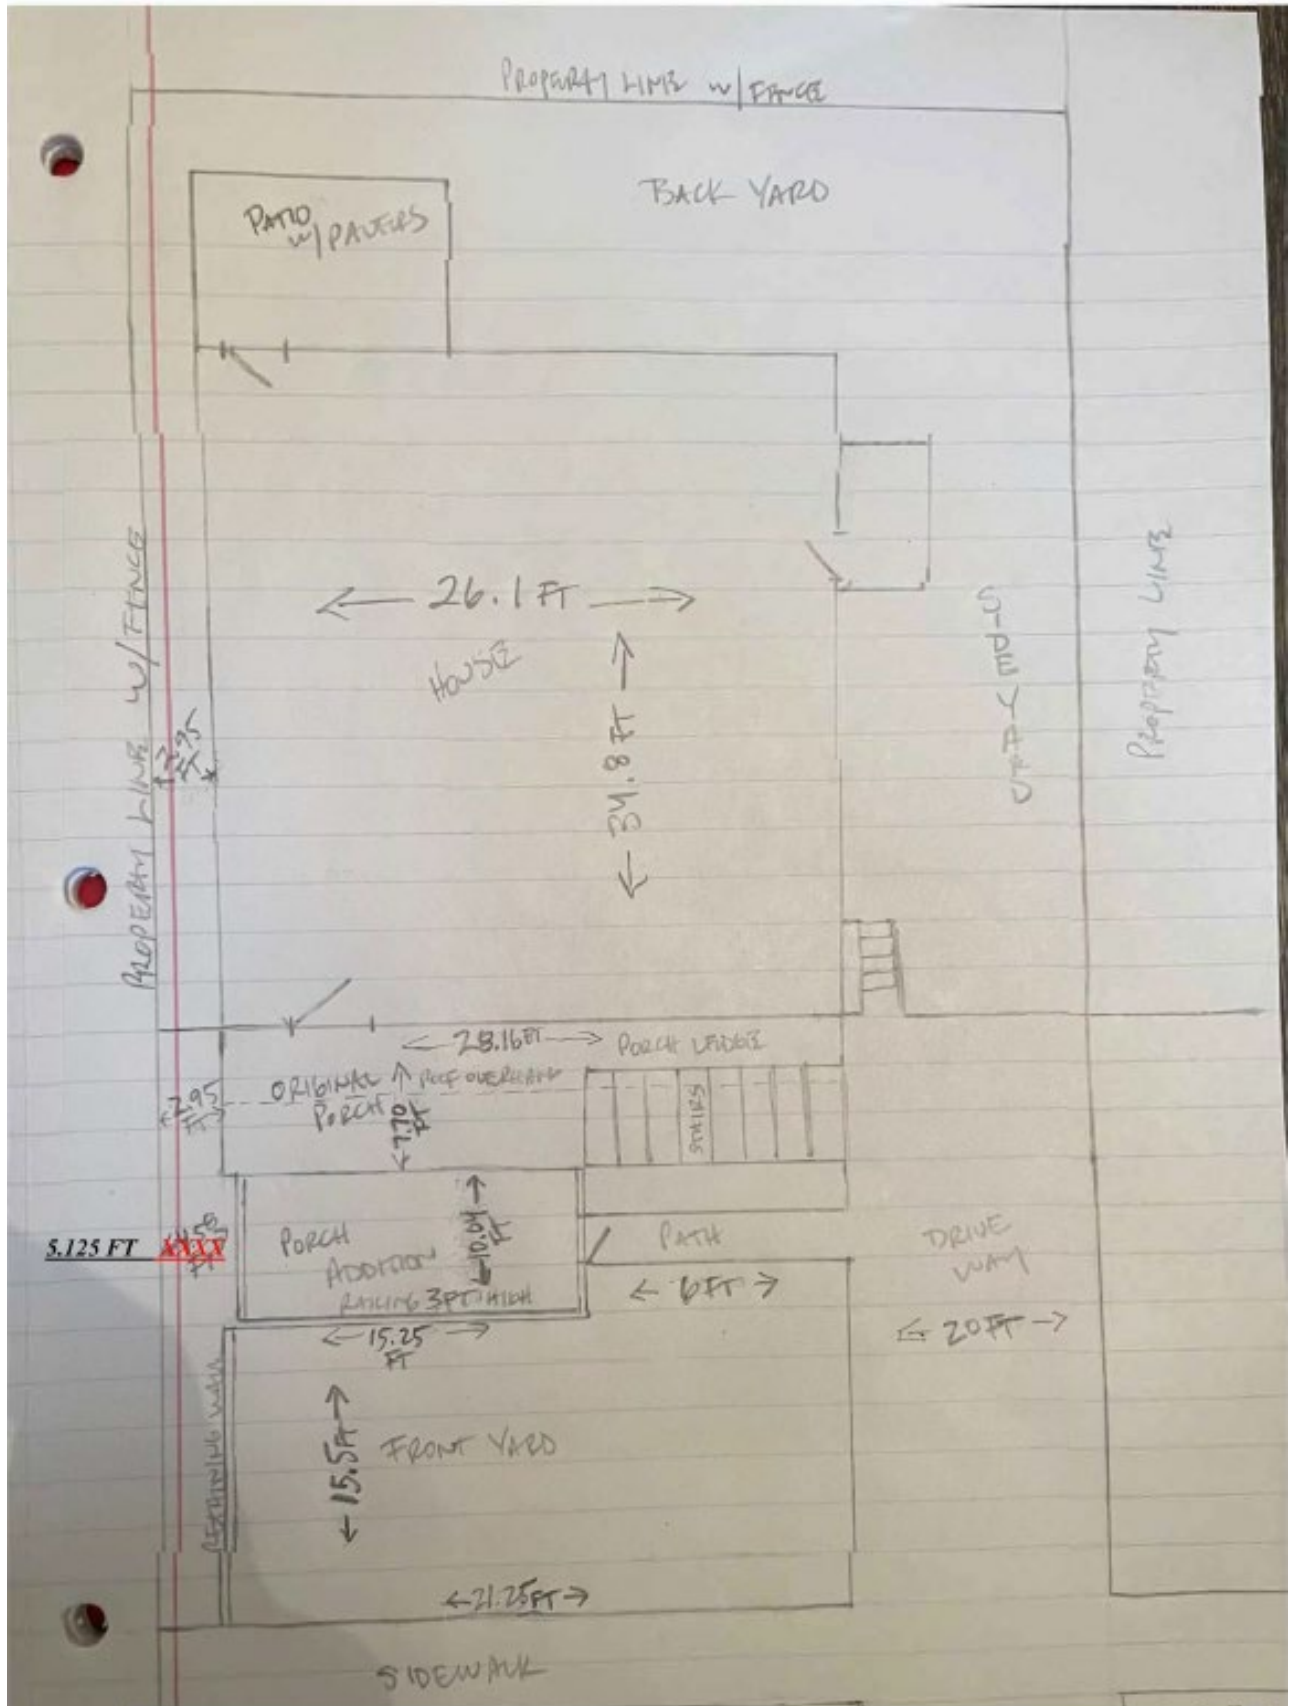 PROPERTY LINE W/ FENCE
BACK YARD
PATIO
W/ PAVERS
PROPERTY LINE W/ FENCE
26.1 FT
HOUSE
34.8 FT
SIDE YARD
PROPERTY LINE
2.95
FT
28.16 FT
PORCH LEDGE
ORIGINAL
PORCH
ROOF OVERHANG
7.70
FT
2.95
FT
STAIRS
5.125 FT XXXX
PORCH
ADDITION
10.04
FT
RAILING 3FT HIGH
PATH
6 FT
DRIVE
WAY
20 FT
15.25
FT
RETAINING WALL
15.5 FT
FRONT YARD
21.25 FT
SIDEWALK